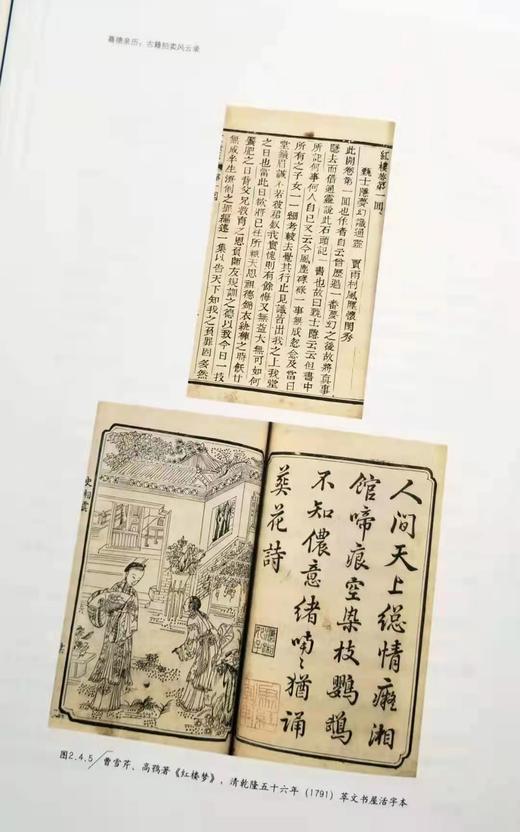 嘉德亲历：古籍拍卖风云录
紅樓夢第一回
甄士隱夢幻識通靈　賈雨村風塵懷閨秀
此開卷第一回也作者自云曾歷過一番夢幻之後故將真事
隱去而借通靈說此石頭記一書也故曰甄士隱云云但書中
所記何事何人自己又云今風塵碌碌一事無成忽念及當日
所有之女子一一細考較去覺其行止見識皆出我之上我堂
堂鬚眉誠不若彼裙釵我實愧則有餘悔又無益大無可如何
之日也當此日欲將已往所賴天恩祖德錦衣紈褲之時飫甘
饜肥之日背父兄教育之恩負師友規訓之德以致今日一技
無成半生潦倒之罪編述一集以告天下知我之負罪固多然
第一回
人間天上總情癡湘
館啼痕空染枝鸚鵡
不知儂意緒喃喃猶誦
葬花詩
史湘雲
图2.4.5 曹雪芹、高鹗著《紅楼梦》，清乾隆五十六年（1791）萃文书屋活字本